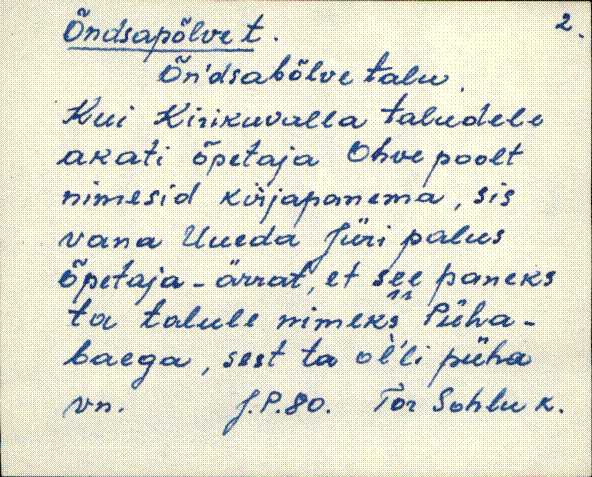 Õndsapõlve t. 2.
Õn'dsabõlve talu.
Kui Kirikuvalla taludele
akati õpetaja Ohve poolt
nimesid kirjapanema, sis
vana Uueda Jüri palus
õpetaja-ärrat, et see paneks
ta talule nimeks "Püha-
baega, sest ta ol'li püha
vn. J.P.80. Tor Sohlu k.